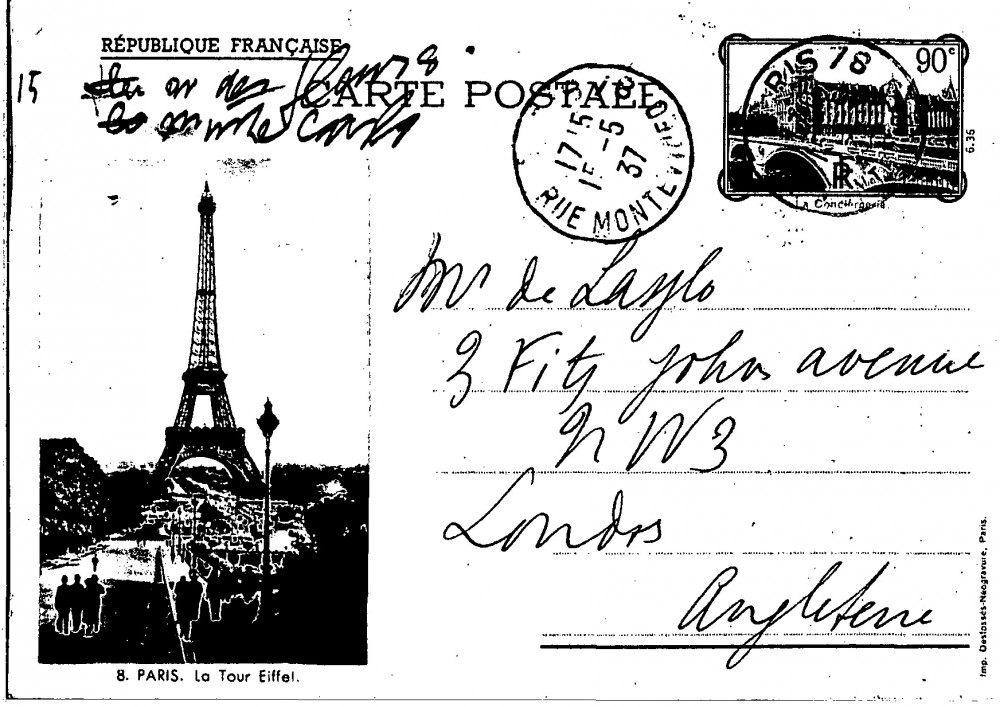 RÉPUBLIQUE FRANÇAISE
15
CARTE POSTALE
PARIS 78
17 15
15 -5
37
RUE MONTEVIDEO
PARIS 78
90c
RF
La Conciergerie
6.36
Mr de Laszlo
3 Fitz Johns avenue
N W 3
Londres
Angleterre
8. PARIS. La Tour Eiffel.
Imp. Desfossés-Néogravure, Paris.